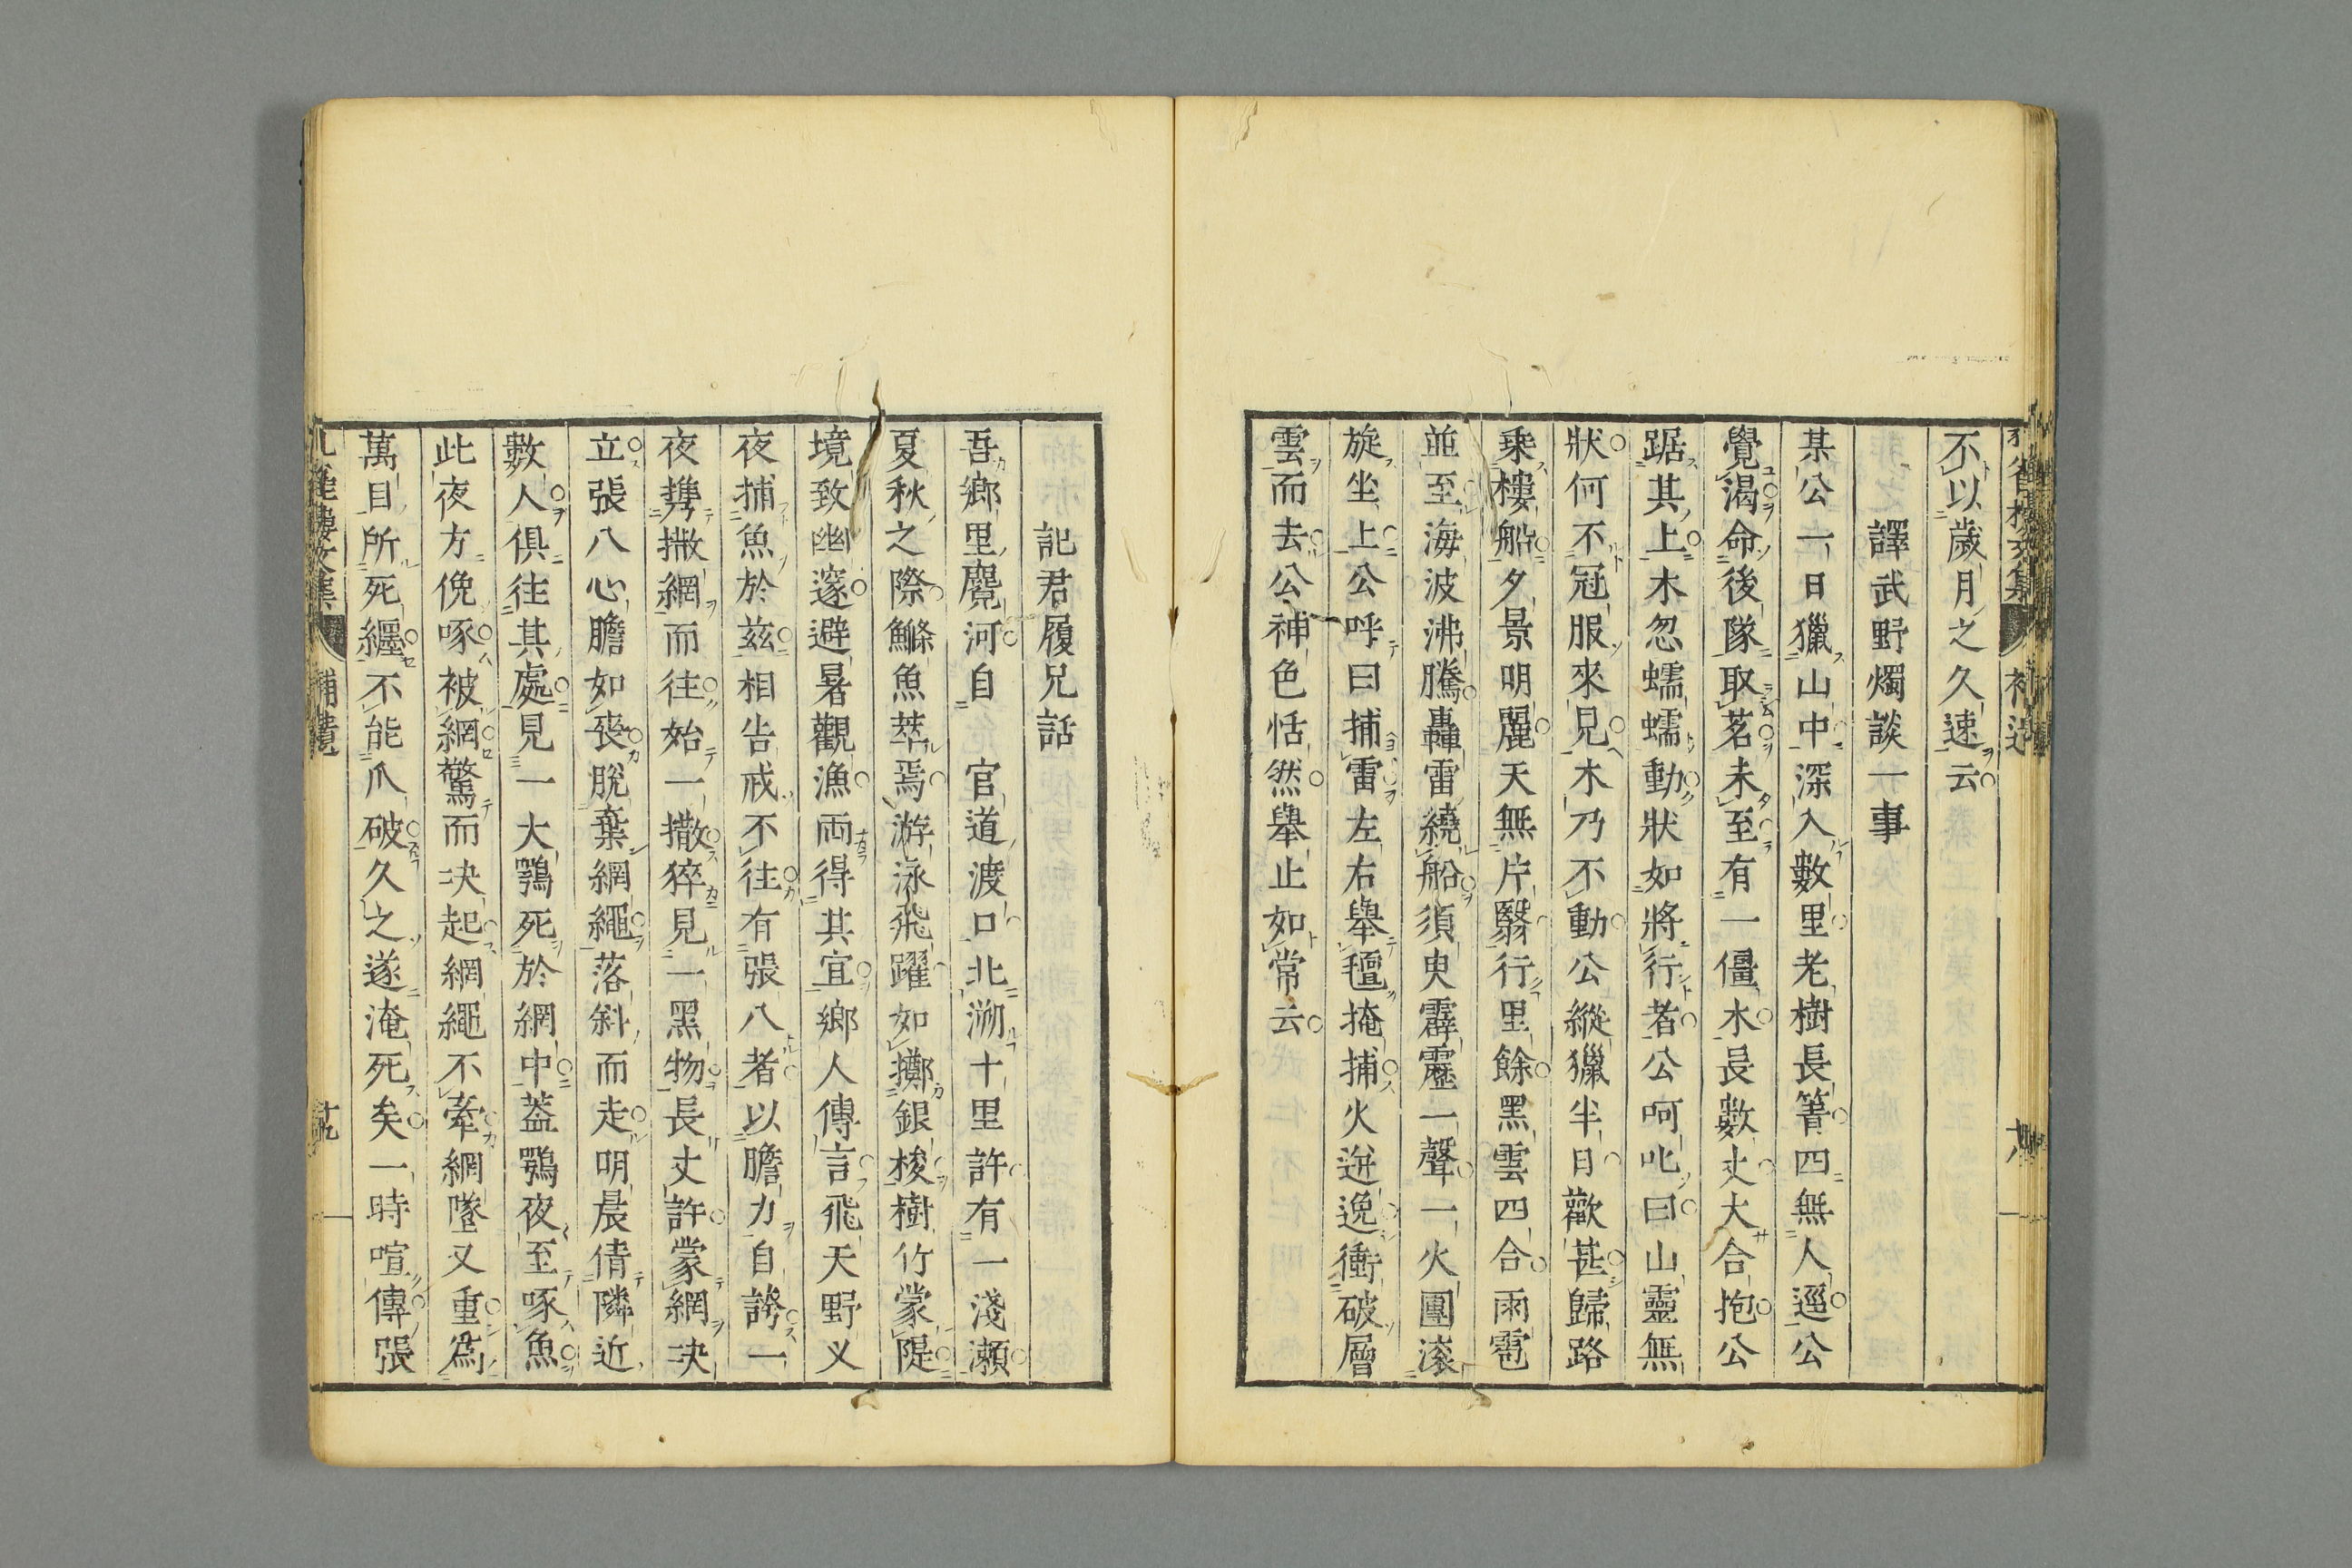 不以歲月之久速云
譯武野燭談一事
某公一日獵山中深入數里老樹長箐四無人逕公
覺渴命後隊取茗未至有一僵木長數丈大合抱公
踞其上木忽蠕蠕動狀如將行者公呵叱曰山靈無
狀何不冠服來見木乃不動公縱獵半日歡甚歸路
乘樓船夕景明麗天無片翳行里餘黑雲四合雨雹
並至海波沸騰轟雷繞船須臾霹靂一聲一火團滚
旋坐上公呼曰捕雷左右舉氊掩捕火迸逸衝破層
雲而去公神色恬然舉止如常云
補遺
記君履兄話
吾鄉里麑河自 官道渡口北溯十里許有一淺瀬
夏秋之際鰷魚萃焉游泳飛躍如擲銀梭樹竹蒙隄
境致幽邃避暑觀漁兩得其宜鄉人傳言飛天野义
夜捕魚於兹相告戒不往有張八者以膽力自誇一
夜携撒網而往始一撒猝見一黑物長丈許蒙網决
立張八心膽如喪脫棄網繩落斜而走明晨倩隣近
數人俱往其處見一大鶚死於網中葢鶚夜至啄魚
此夜方俛啄被網驚而决起網繩不牽網墜又重爲
萬目所死纒不能爪破久之遂淹死矣一時喧傳張
樓文集 補遺 十九